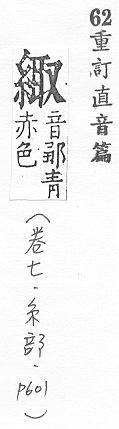 62重訂直音篇
緅
音鄹青
赤色
（卷七·糸部·p601）